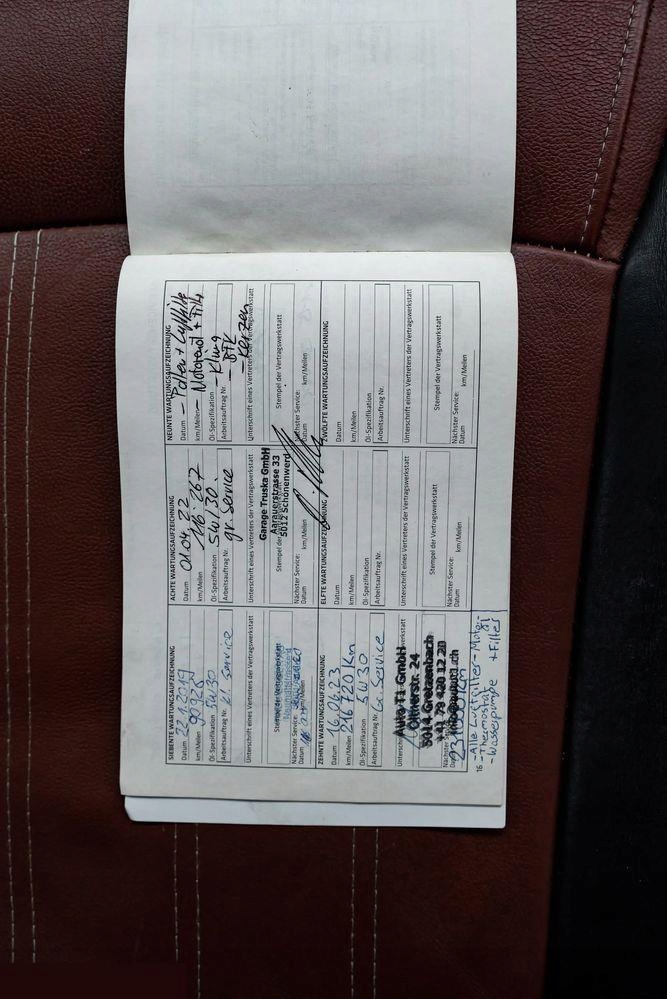 SIEBENTE WARTUNGSAUFZEICHNUNG
Datum 22.1.2019
km/Meilen 90926
Öl-Spezifikation 5W30
Arbeitsauftrag Nr. kl. Service
Unterschrift eines Vertreters der Vertragswerkstatt
Stempel der Vertragswerkstatt
Nächster Service:
Datum km/Meilen
ACHTE WARTUNGSAUFZEICHNUNG
Datum 01.04.22
km/Meilen 116'267
Öl-Spezifikation 5W30
Arbeitsauftrag Nr. gr. Service
Unterschrift eines Vertreters der Vertragswerkstatt
Garage Truska GmbH
Aarauerstrasse 33
5012 Schönenwerd
Stempel der
Nächster Service:
Datum km/Meilen
NEUNTE WARTUNGSAUFZEICHNUNG
Datum - Pollen + Luftfilter
km/Meilen - Motorenöl + Filt.
Öl-Spezifikation
Arbeitsauftrag Nr.
- Kerzen
Unterschrift eines Vertreters der Vertragswerkstatt
Stempel der Vertragswerkstatt
Nächster Service:
Datum km/Meilen
ZEHNTE WARTUNGSAUFZEICHNUNG
Datum 16.06.23
km/Meilen 216720 Km
Öl-Spezifikation 5W30
Arbeitsauftrag Nr. Gr. Service
Auto T1 GmbH
Oltnerstr. 24
5014 Gretzenbach
+41 79 420 12 20
ELFTE WARTUNGSAUFZEICHNUNG
Datum
km/Meilen
Öl-Spezifikation
Arbeitsauftrag Nr.
Unterschrift eines Vertreters der Vertragswerkstatt
Stempel der Vertragswerkstatt
Nächster Service:
Datum km/Meilen
ZWÖLFTE WARTUNGSAUFZEICHNUNG
Datum
km/Meilen
Öl-Spezifikation
Arbeitsauftrag Nr.
Unterschrift eines Vertreters der Vertragswerkstatt
Stempel der Vertragswerkstatt
Nächster Service:
Datum km/Meilen
- Alle Luftfilter - Motor-
öl
- Thermostat + Filter
- Wasserpumpe
16